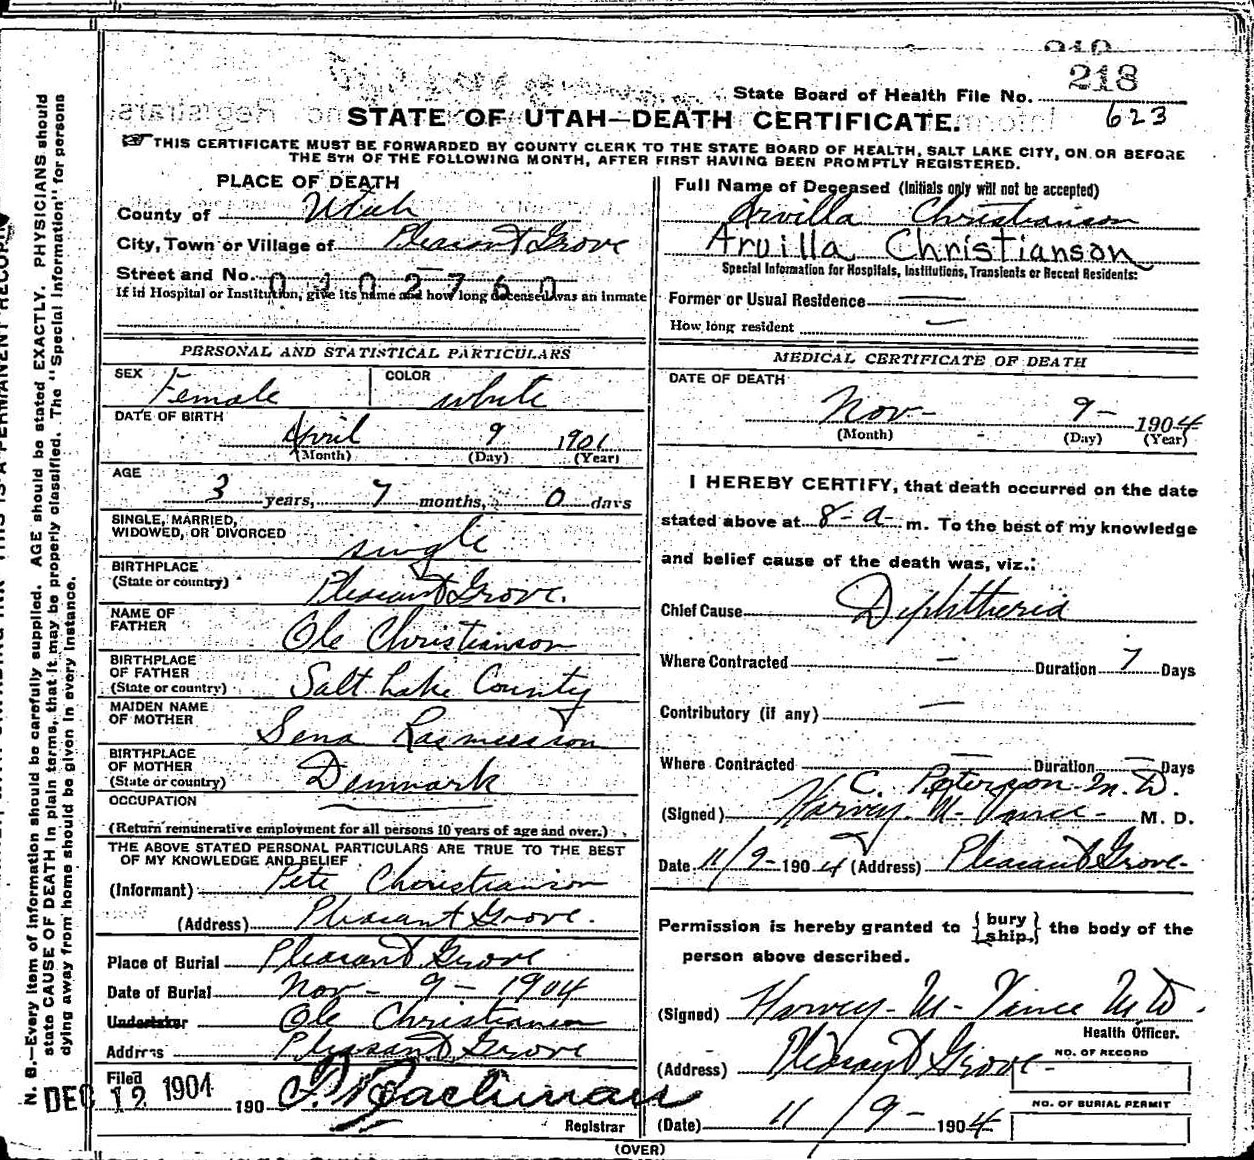 218
State Board of Health File No. 218
623
STATE OF UTAH—DEATH CERTIFICATE.
☞ THIS CERTIFICATE MUST BE FORWARDED BY COUNTY CLERK TO THE STATE BOARD OF HEALTH, SALT LAKE CITY, ON OR BEFORE
THE 5TH OF THE FOLLOWING MONTH, AFTER FIRST HAVING BEEN PROMPTLY REGISTERED.
PLACE OF DEATH
County of Utah
City, Town or Village of Pleasant Grove
Street and No. 0302760
If in Hospital or Institution, give its name and how long deceased was an inmate
Full Name of Deceased (Initials only will not be accepted)
Arvilla Christianson
Arvilla Christianson
Special Information for Hospitals, Institutions, Transients or Recent Residents:
Former or Usual Residence —
How long resident —
PERSONAL AND STATISTICAL PARTICULARS
SEX Female
COLOR white
DATE OF BIRTH
April 9 1901
(Month) (Day) (Year)
AGE
3 years, 7 months, 0 days
SINGLE, MARRIED,
WIDOWED, OR DIVORCED single
BIRTHPLACE
(State or country) Pleasant Grove.
NAME OF
FATHER Ole Christianson
BIRTHPLACE
OF FATHER
(State or country) Salt Lake County
MAIDEN NAME
OF MOTHER Sena Rasmusson
BIRTHPLACE
OF MOTHER
(State or country) Denmark
OCCUPATION —
(Return remunerative employment for all persons 10 years of age and over.)
THE ABOVE STATED PERSONAL PARTICULARS ARE TRUE TO THE BEST
OF MY KNOWLEDGE AND BELIEF
(Informant) Pete Christianson
(Address) Pleasant Grove.
Place of Burial Pleasant Grove
Date of Burial Nov - 9 - 1904
Undertaker Ole Christianson
Address Pleasant Grove
Filed
DEC 12 1904 190
Registrar
MEDICAL CERTIFICATE OF DEATH
DATE OF DEATH
Nov - 9 - 1904
(Month) (Day) (Year)
I HEREBY CERTIFY, that death occurred on the date
stated above at 8 - a m. To the best of my knowledge
and belief cause of the death was, viz.:
Chief Cause Diphtheria
Where Contracted — Duration 7 Days
Contributory (if any) —
Where Contracted — Duration — Days
C. Peterson M. D.
(Signed) Harvey M - Vance - M. D.
Date 11/9 - 1904 (Address) Pleasant Grove -
Permission is hereby granted to {bury ship,} the body of the
person above described.
(Signed) Harvey - M - Vance M D.
Health Officer.
(Address) Pleasant Grove -
NO. OF RECORD
NO. OF BURIAL PERMIT
(Date) 11 / 9 - 1904
(OVER)
N. B.—Every item of information should be carefully supplied. AGE should be stated EXACTLY. PHYSICIANS should
state CAUSE OF DEATH in plain terms, that it may be properly classified. The "Special Information" for persons
dying away from home should be given in every instance.